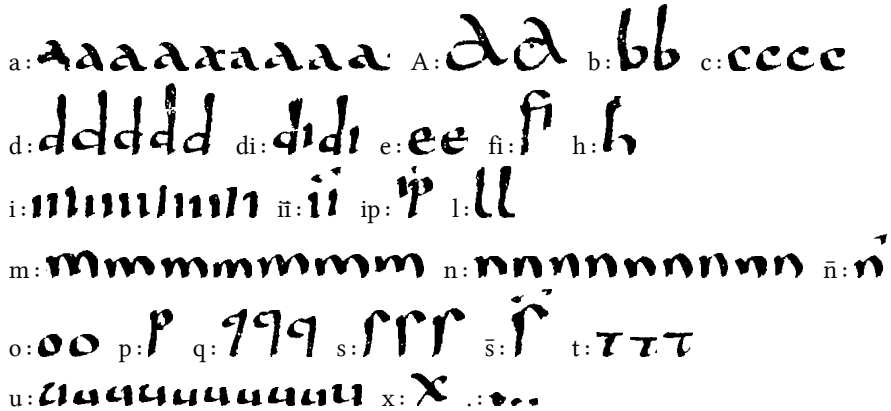 a: aaaaaaaaa A: AA b: bb c: cccc
d: ddddd di: didi e: ee fi: fi h: h
i: iiiiiiiiiiiiii īī: īī ip: ip l: ll
m: mmmmmmm n: nnnnnnnnn n̄: n̄
o: oo p: p q: qqq s: sss s̄: s̄ t: τττ
u: uuuuuuuuuu x: x .: ...